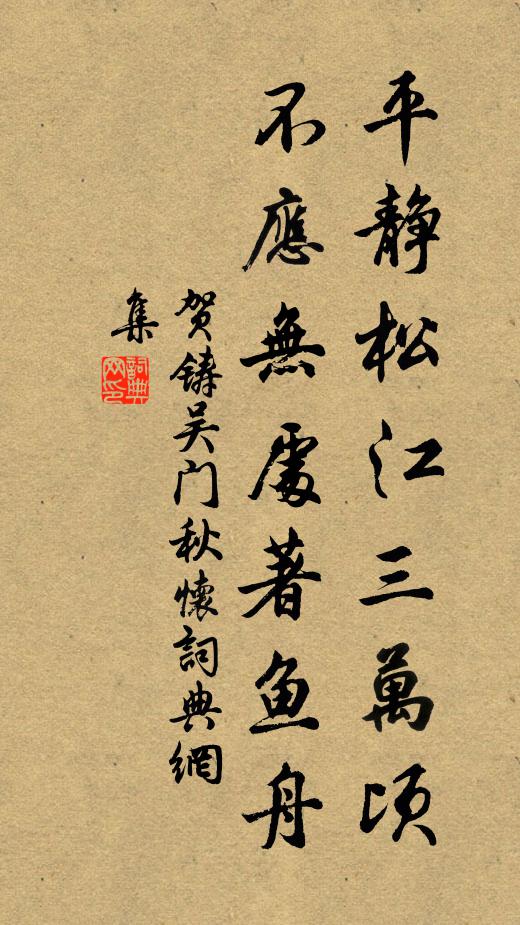 平静松江三萬顷
不應無處著鱼舟
贺鑄吴门秋懷詞典網
集
詞典
网印